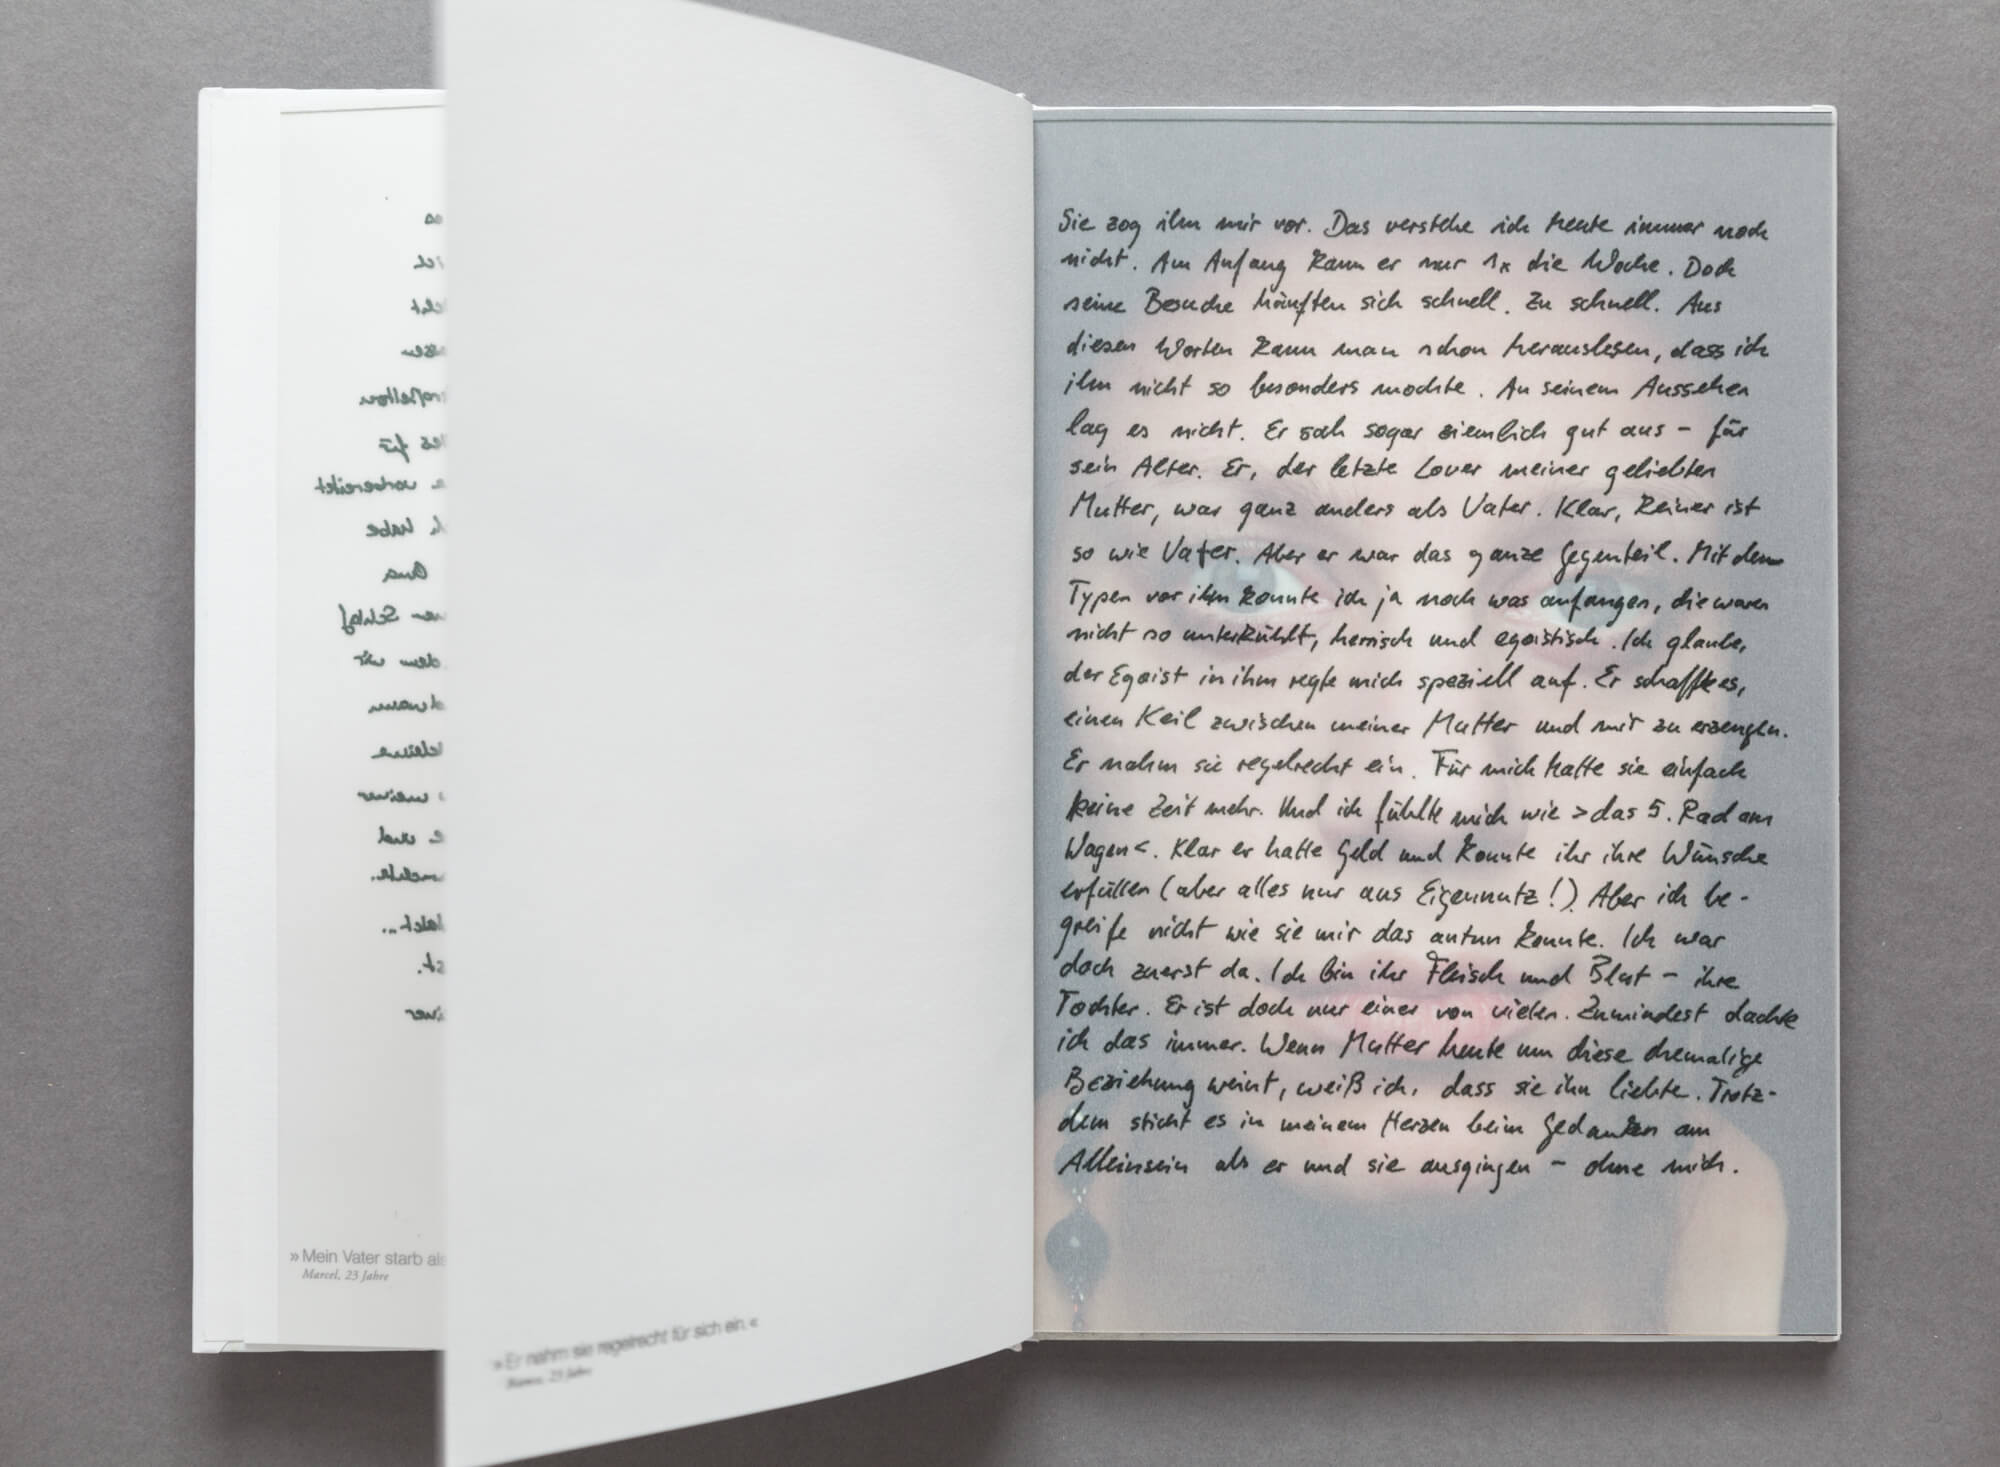 »Mein Vater starb als
Marcel, 23 Jahre
»Er nahm sie regelrecht für sich ein.«
23 Jahre
Sie zog ihn mir vor. Das verstehe ich heute immer noch
nicht. Am Anfang kam er nur 1x die Woche. Doch
seine Besuche häuften sich schnell. Zu schnell. Aus
diesen Worten kann man schon herauslesen, dass ich
ihn nicht so besonders mochte. An seinem Aussehen
lag es nicht. Er sah sogar ziemlich gut aus – für
sein Alter. Er, der letzte Lover meiner geliebten
Mutter, war ganz anders als Vater. Klar, Keiner ist
so wie Vater. Aber er war das ganze Gegenteil. Mit dem
Typen vor ihm konnte ich ja noch was anfangen, die waren
nicht so unterkühlt, herrisch und egoistisch. Ich glaube,
der Egoist in ihm regte mich speziell auf. Er schaffte es,
einen Keil zwischen meiner Mutter und mir zu erzeugen.
Er nahm sie regelrecht ein. Für mich hatte sie einfach
keine Zeit mehr. Und ich fühlte mich wie >das 5. Rad am
Wagen<. Klar er hatte Geld und konnte ihr ihre Wünsche
erfüllen (aber alles nur aus Eigennutz!). Aber ich be-
greife nicht wie sie mir das antun konnte. Ich war
doch zuerst da. Ich bin ihr Fleisch und Blut – ihre
Tochter. Er ist doch nur einer von vielen. Zumindest dachte
ich das immer. Wenn Mutter heute um diese ehemalige
Beziehung weint, weiß ich, dass sie ihn liebte. Trotz-
dem sticht es in meinem Herzen beim Gedanken am
Alleinsein als er und sie ausgingen – ohne mich.